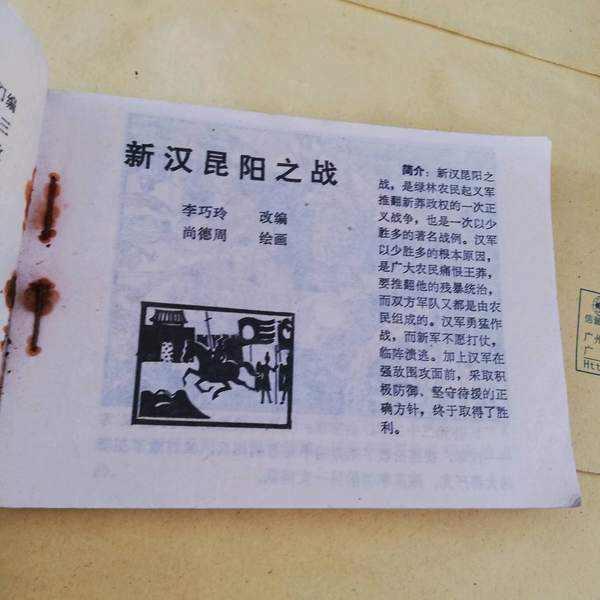 新汉昆阳之战
李巧玲 改编
尚德周 绘画
简介：新汉昆阳之
战，是绿林农民起义军
推翻新莽政权的一次正
义战争，也是一次以少
胜多的著名战例。汉军
以少胜多的根本原因，
是广大农民痛恨王莽，
要推翻他的残暴统治，
而双方军队又都是由农
民组成的。汉军勇猛作
战，而新军不愿打仗，
临阵溃逃。加上汉军在
强敌围攻面前，采取积
极防御、坚守待援的正
确方针，终于取得了胜
利。
编
三
广州
广
Htt